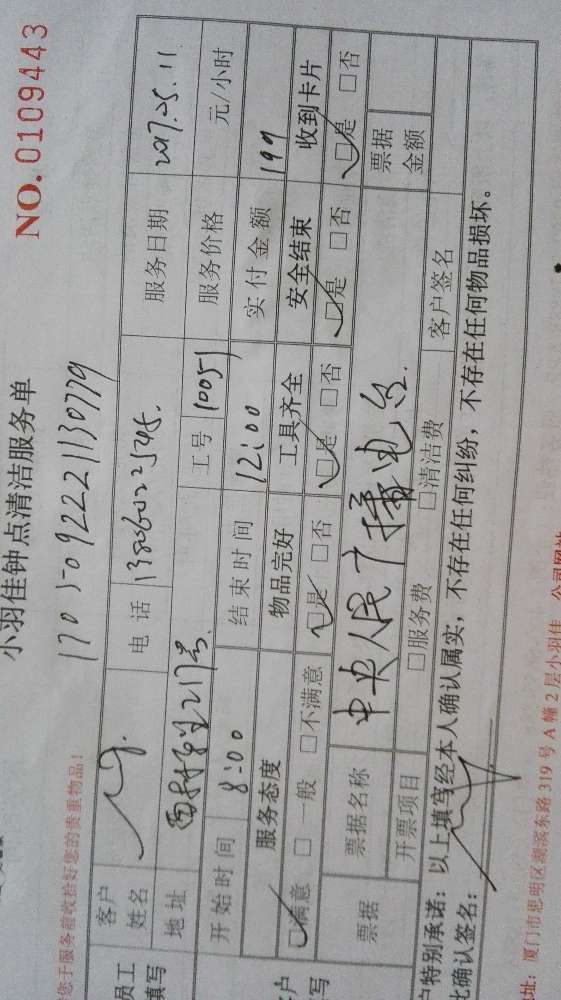 小羽佳钟点清洁服务单
NO.0109443
您于服务前收拾好您的贵重物品!
170509222113 0779
员工填写
客户姓名 电话 13806022545. 服务日期 2017.05.11
地址 217号. 工号 10051 服务价格 元/小时
开始时间 8:00 结束时间 12:00 实付金额 199
服务态度 物品完好 工具齐全 安全结束 收到卡片
☑满意 □一般 □不满意 ☑是 □否 ☑是 □否 ☑是 □否 ☑是 □否
票据 票据名称 中央人民广播电台 票据金额
开票项目 □服务费 □清洁费 客户签名
户特别承诺:以上填写经本人确认属实,不存在任何纠纷,不存在任何物品损坏。
此确认签名:
址:厦门市思明区湖滨东路 319 号 A 幢 2 层小羽佳